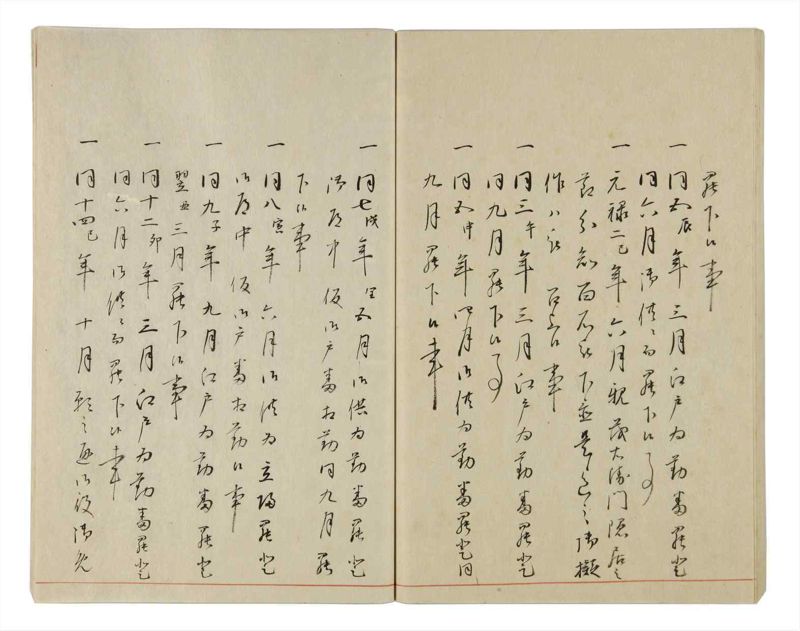 罷下候事
一同五辰年三月江戸為勤番罷登
同六月御供ニ而罷下候事
一元禄二巳年六月親茂大衛門隠居之
節分知百石被下置是迄之御擬
作ハ被召上候事
一同三午年三月江戸為勤番罷登
同九月罷下候事
一同五申年四月御供為勤番罷登同
九月罷下候事
一同七戌年閏五月御供為勤番罷登
御道中仮御戸番相勤同九月罷
下候事
一同八寅年六月御供為立帰罷登
御道中仮御戸番相勤候事
一同九子年九月江戸為勤番罷登
翌丑三月罷下候事
一同十二卯年三月江戸為勤番罷登
同六月御供ニ而罷下候事
一同十四巳年十月願之通御役御免